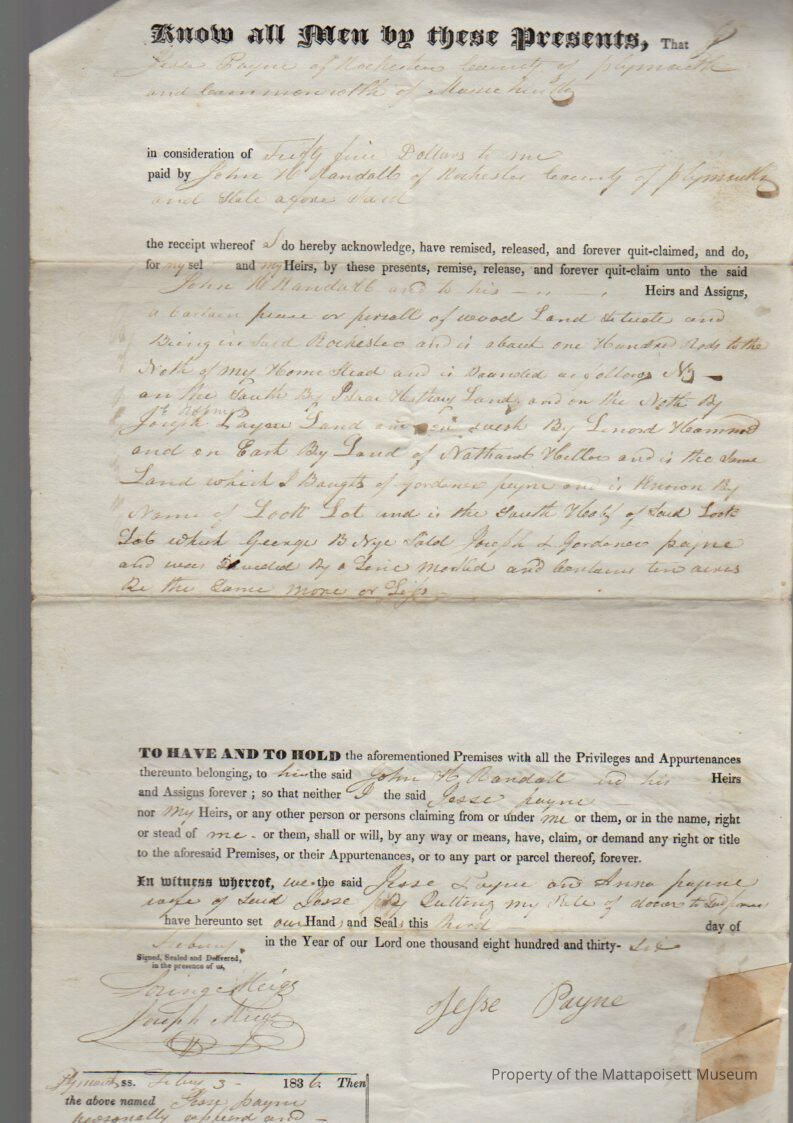 Know all Men by these Presents, That I
Jesse Payne of Rochester County of plymouth
and Commonwelth of Massachusetts
in consideration of Fifty five Dollars to me
paid by John H Randall of Rochester County of plymouth
and State afore Said
the receipt whereof I do hereby acknowledge, have remised, released, and forever quit-claimed, and do,
for my sel and my Heirs, by these presents, remise, release, and forever quit-claim unto the said
John H Randall and to his Heirs and Assigns,
a certain peace or persell of wood Land situate and
Being in Said Rochester and is about one Hundred Rods to the
Noth of my Home Stead and is Bounded as follows
on the South By Isaac Hathway Land and on the Noth By
Joseph Payne Land west By Linord Hammond
and on East By Land of Nathanel Hiller and is the Same
Land which I Baught of gordence payne and is Known By
Name of Look Lot and is the South Half of Said Look
Lot which George B Nye Sold Joseph & Gordence payne
and was Deveded By a Line marked and Contains ten acres
Be the Same more or Less
TO HAVE AND TO HOLD the aforementioned Premises with all the Privileges and Appurtenances
thereunto belonging, to him the said John H Randall his Heirs
and Assigns forever ; so that neither I the said Jesse payne
nor my Heirs, or any other person or persons claiming from or under me or them, or in the name, right
or stead of me - or them, shall or will, by any way or means, have, claim, or demand any right or title
to the aforesaid Premises, or their Appurtenances, or to any part or parcel thereof, forever.
In witness whereof, we the said Jesse Payne and Anna payne
wife of Said Jesse By Quitting my of dower to
have hereunto set our Hand and Seal this third day of
in the Year of our Lord one thousand eight hundred and thirty- Six
Signed, Sealed and Delivered,
in the presence of us,
Loring Meigs
Joseph Meigs
Jesse Payne
Plymouth ss. 3 - 1836. Then
the above named Jesse payne
personally and -
Property of the Mattapoisett Museum